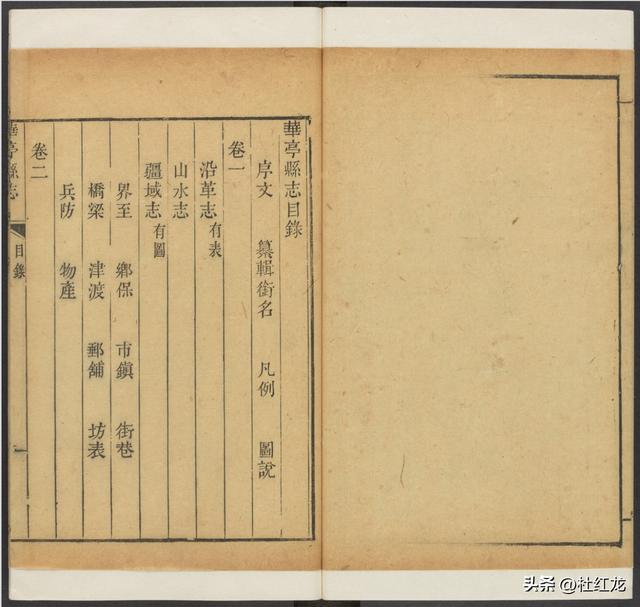 華亭縣志目錄
序文 纂輯銜名 凡例 圖說
卷一
沿革志有表
山水志
疆域志有圖
界至 鄉保 市鎮 街巷
橋梁 津渡 郵舖 坊表
兵防 物產
卷二
華亭縣志 目錄 一
头条 @杜红龙